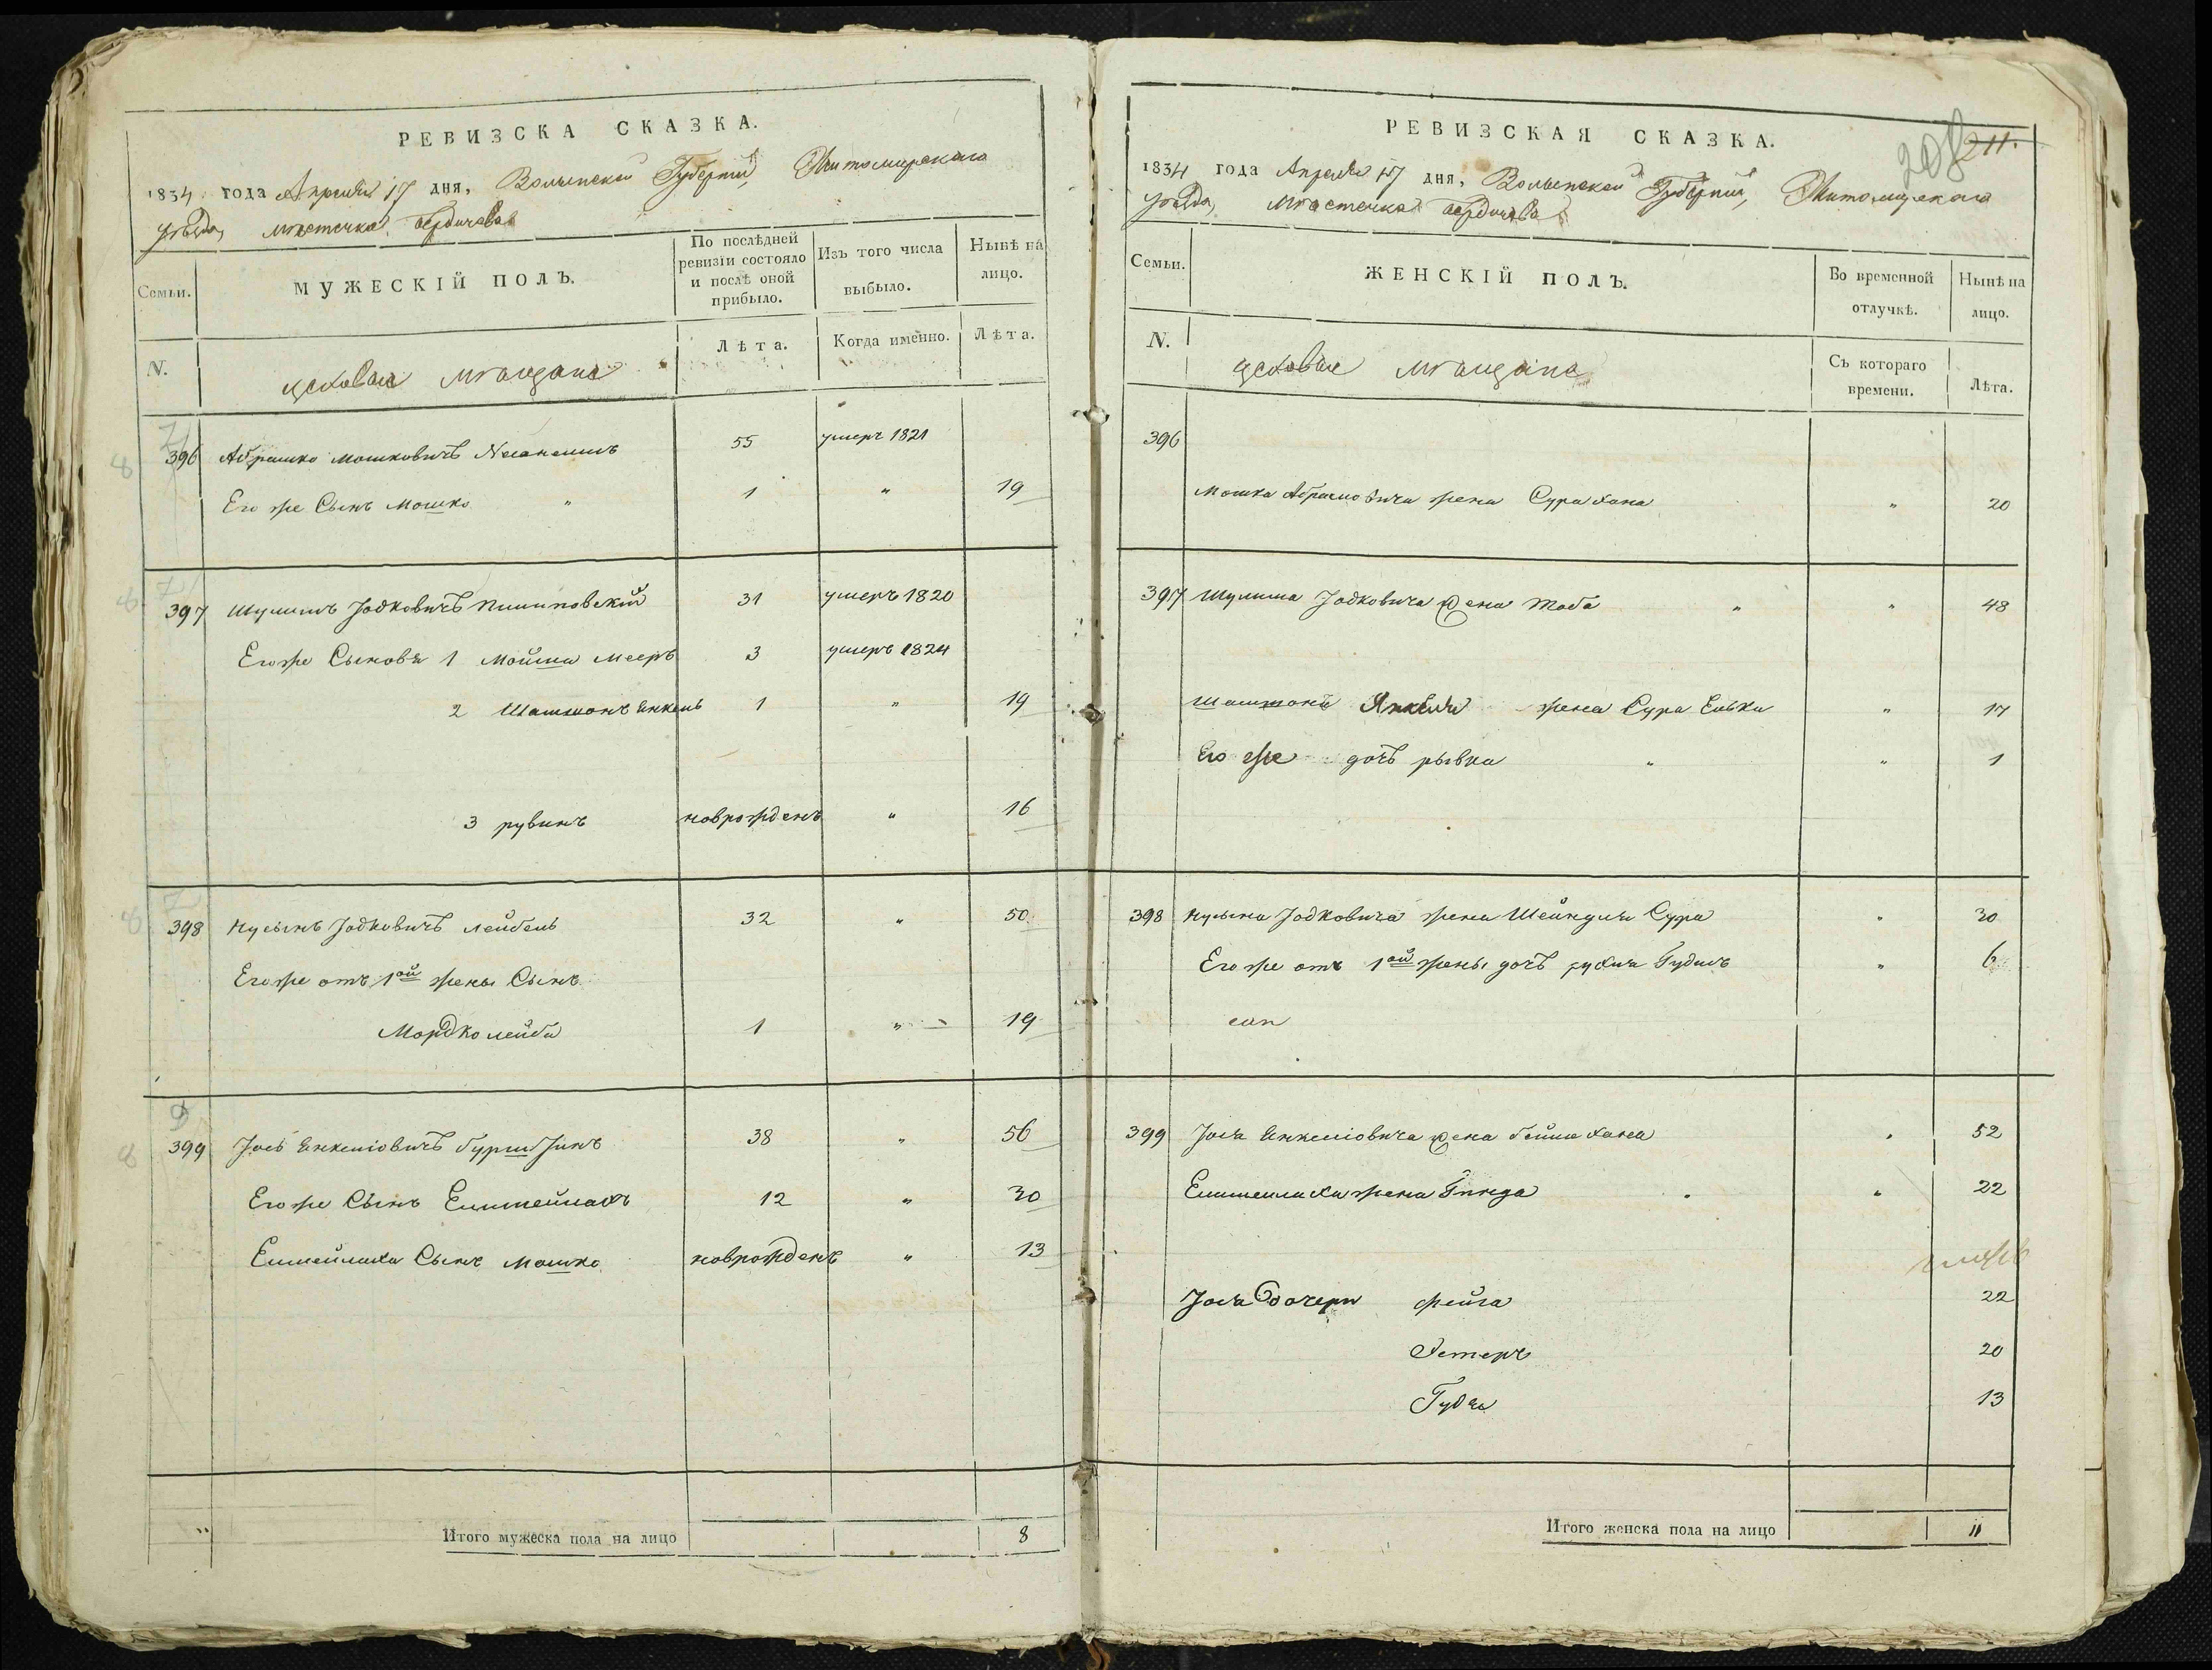 РЕВИЗСКА СКАЗКА.
1834 года Апреля 17 дня, Волынской Губерніи, Житомирскаго
уѣзда, мѣстечка Бердичева
Семьи.
МУЖЕСКІЙ ПОЛЪ.
По послѣдней ревизіи состояло и послѣ оной прибыло.
Изъ того числа выбыло.
Нынѣ на лицо.
N.
Лѣта.
Когда именно.
Лѣта.
цеховые мѣщане
396 Абрамко Мошковичъ 55 умеръ 1821
Его же Сынъ Мошко " 1 " 19
397 Шулимъ Іодковичъ 31 умеръ 1820
Его же Сыновья 1 Мойша Мееръ 3 умеръ 1824
2 Шамшонъ Янкель 1 " 19
3 рувинъ новрожденъ " 16
398 Нусынъ Іодковичъ Лейбель 32 " 50
Его же отъ 1ой жены Сынъ
Мордко лейба 1 " 19
399 Іось Янкеліовичъ бурштинъ 38 " 56
Его же Сынъ Елимейлахъ 12 " 30
Елимейлаха Сынъ Мошко новрожденъ " 13
Итого мужеска пола на лицо 8
РЕВИЗСКАЯ СКАЗКА.
208 211.
1834 года Апреля 17 дня, Волынской Губерніи, Житомирскаго
уѣзда, Мѣстечка Бердичева
Семьи.
ЖЕНСКІЙ ПОЛЪ.
Во временной отлучкѣ.
Нынѣ на лицо.
N.
Съ котораго времени.
Лѣта.
цеховые мѣщане
396
Мошка Абрамовича жена Сура хана " 20
397 Шулима Іодковича жена Тоба " " 48
Шамшона Янкеля жена Сура Елька " 17
Его же дочь рывка " " 1
398 Нусына Іодковича жена Шейндля Сура " 30
Его же отъ 1ой жены дочь рухля " 6
399 Іося Янкеліовича жена бейла хана " 52
Елимелаха жена Гинда " " 22
Іося дочери фейга 22
Эстеръ 20
Гудя 13
Итого женска пола на лицо 11